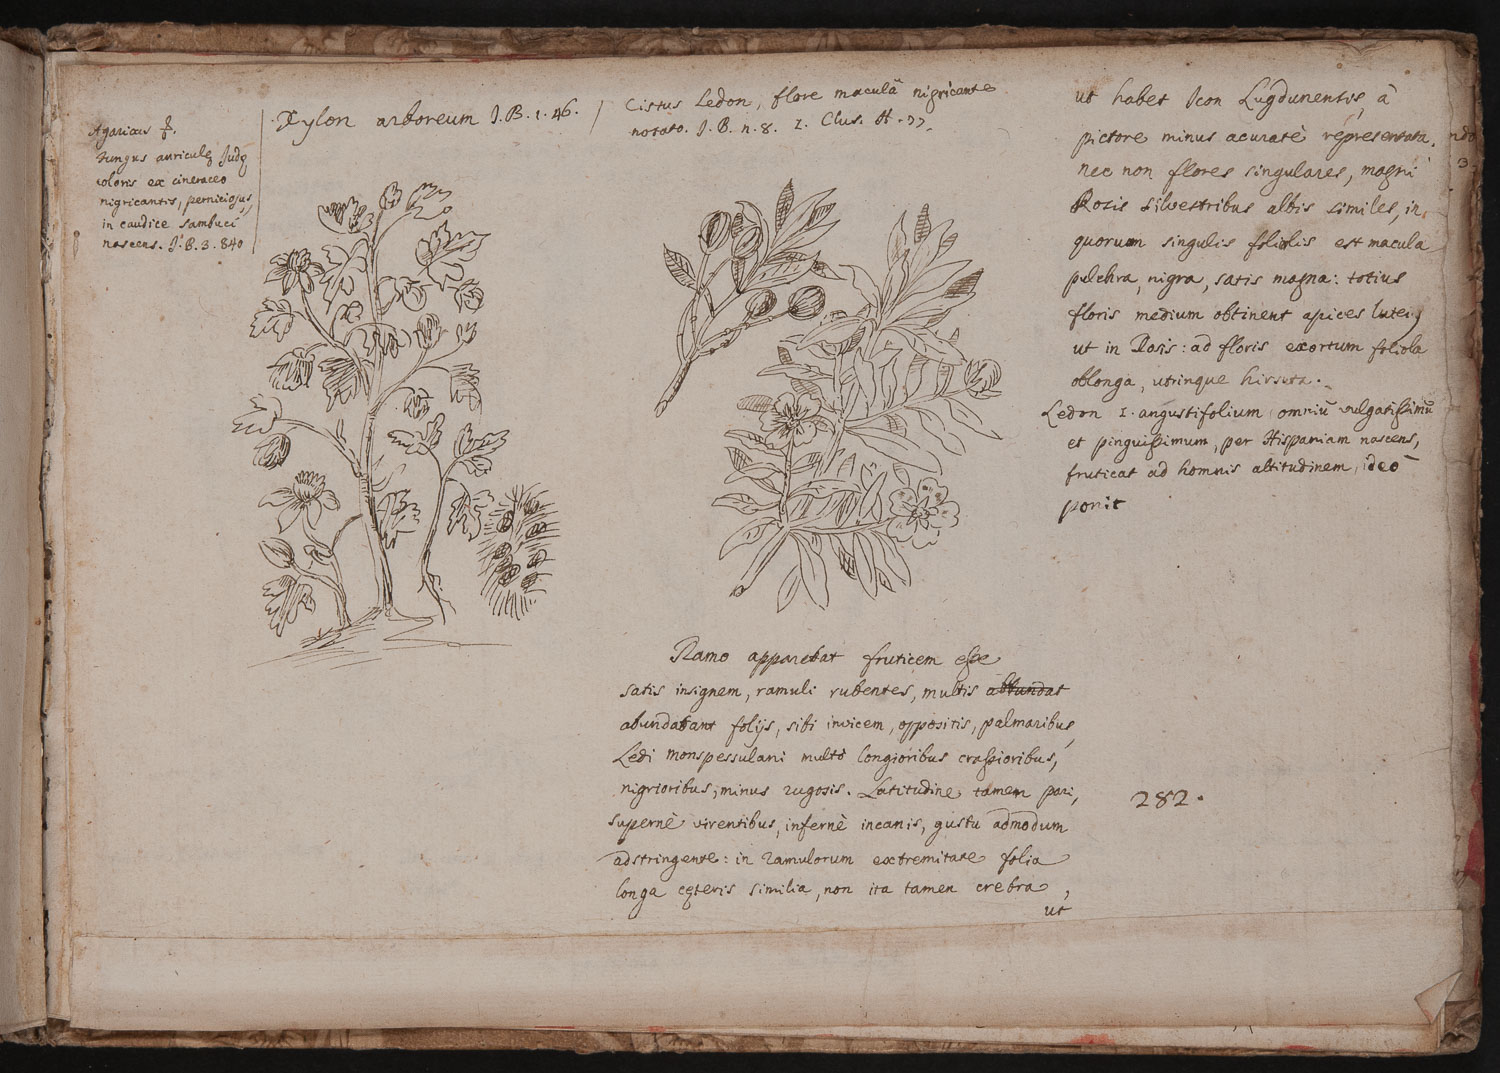 Agaricus
fungus auriculę Judę
coloris ex cineraceo
nigricantis, perniciosus,
in caudice sambuci
nascens. J. B. 3. 840
Xylon arboreum J. B. 1. 46.
Cistus Ledon, flore maculâ nigricante
notato. J. B. n. 8. I. Clus. H. 77.
Ramo apparebat fruticem esse
satis insignem, ramuli rubentes, multis abbundat
abundabant folijs, sibi invicem, oppositis, palmaribus,
Ledi monspessulani multò longioribus crassioribus,
nigrioribus, minus rugosis. Latitudine tamen pari,
supernè virentibus, infernè incanis, gustu admodum
adstringente: in ramulorum extremitate folia
longa cęteris similia, non ita tamen crebra,
ut
ut habet Icon Lugdunensis, à
pictore minus acuratè representata,
nec non flores singulares, magni
Rosis silvestribus albis similes, in
quorum singulis foliolis est macula
pulchra, nigra, satis magna: totius
floris medium obtinent apices lutei,
ut in Rosis: ad floris exortum foliola
oblonga, utrinque hirsuta.
Ledon I. angustifolium omniũ vulgatissimũ
et pinguissimum, per Hispaniam nascens,
fruticat ad hominis altitudinem, ideò
ponit
282.